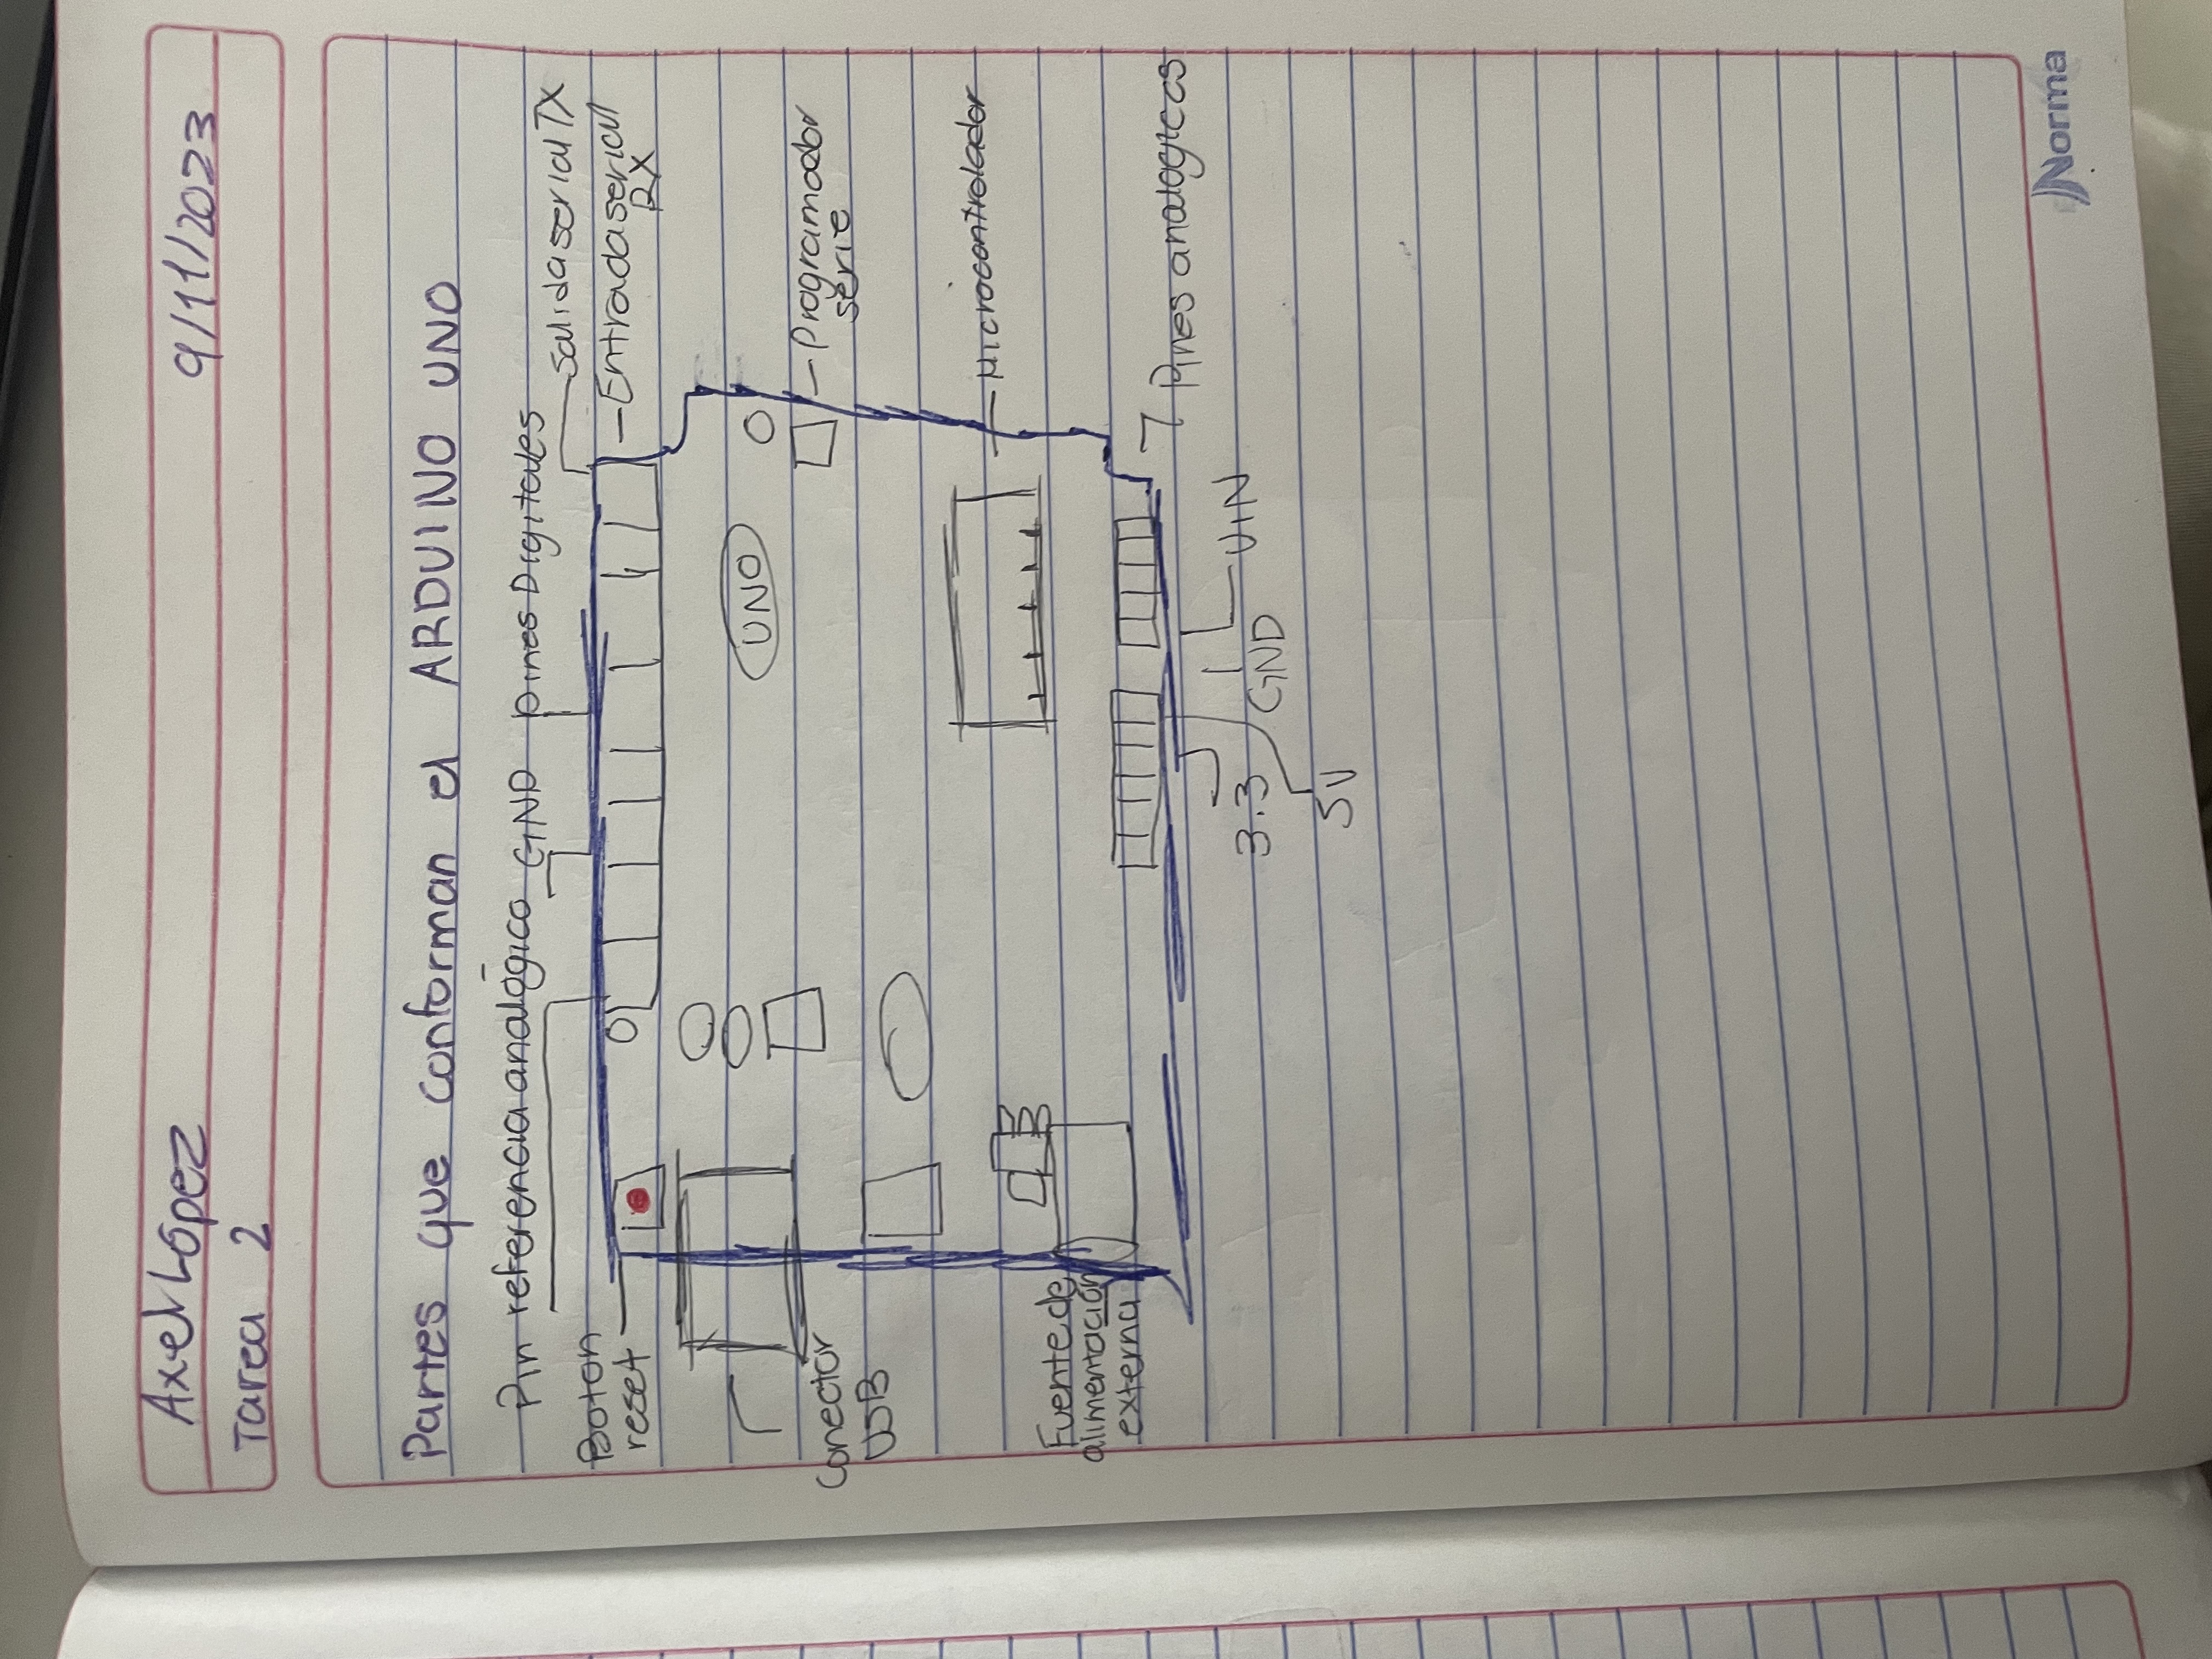 Axel López 9/11/2023
Tarea 2
Partes que conforman el ARDUINO UNO
Pin referencia analógico GND pines Digitales Salida serial TX
Boton
reset
Entrada serial
RX
UNO
Programador
serie
Conector
USB
Microcontrolador
Fuente de
alimentación
externa
Pines analogicos
VIN
GND
3.3
5V
Norma